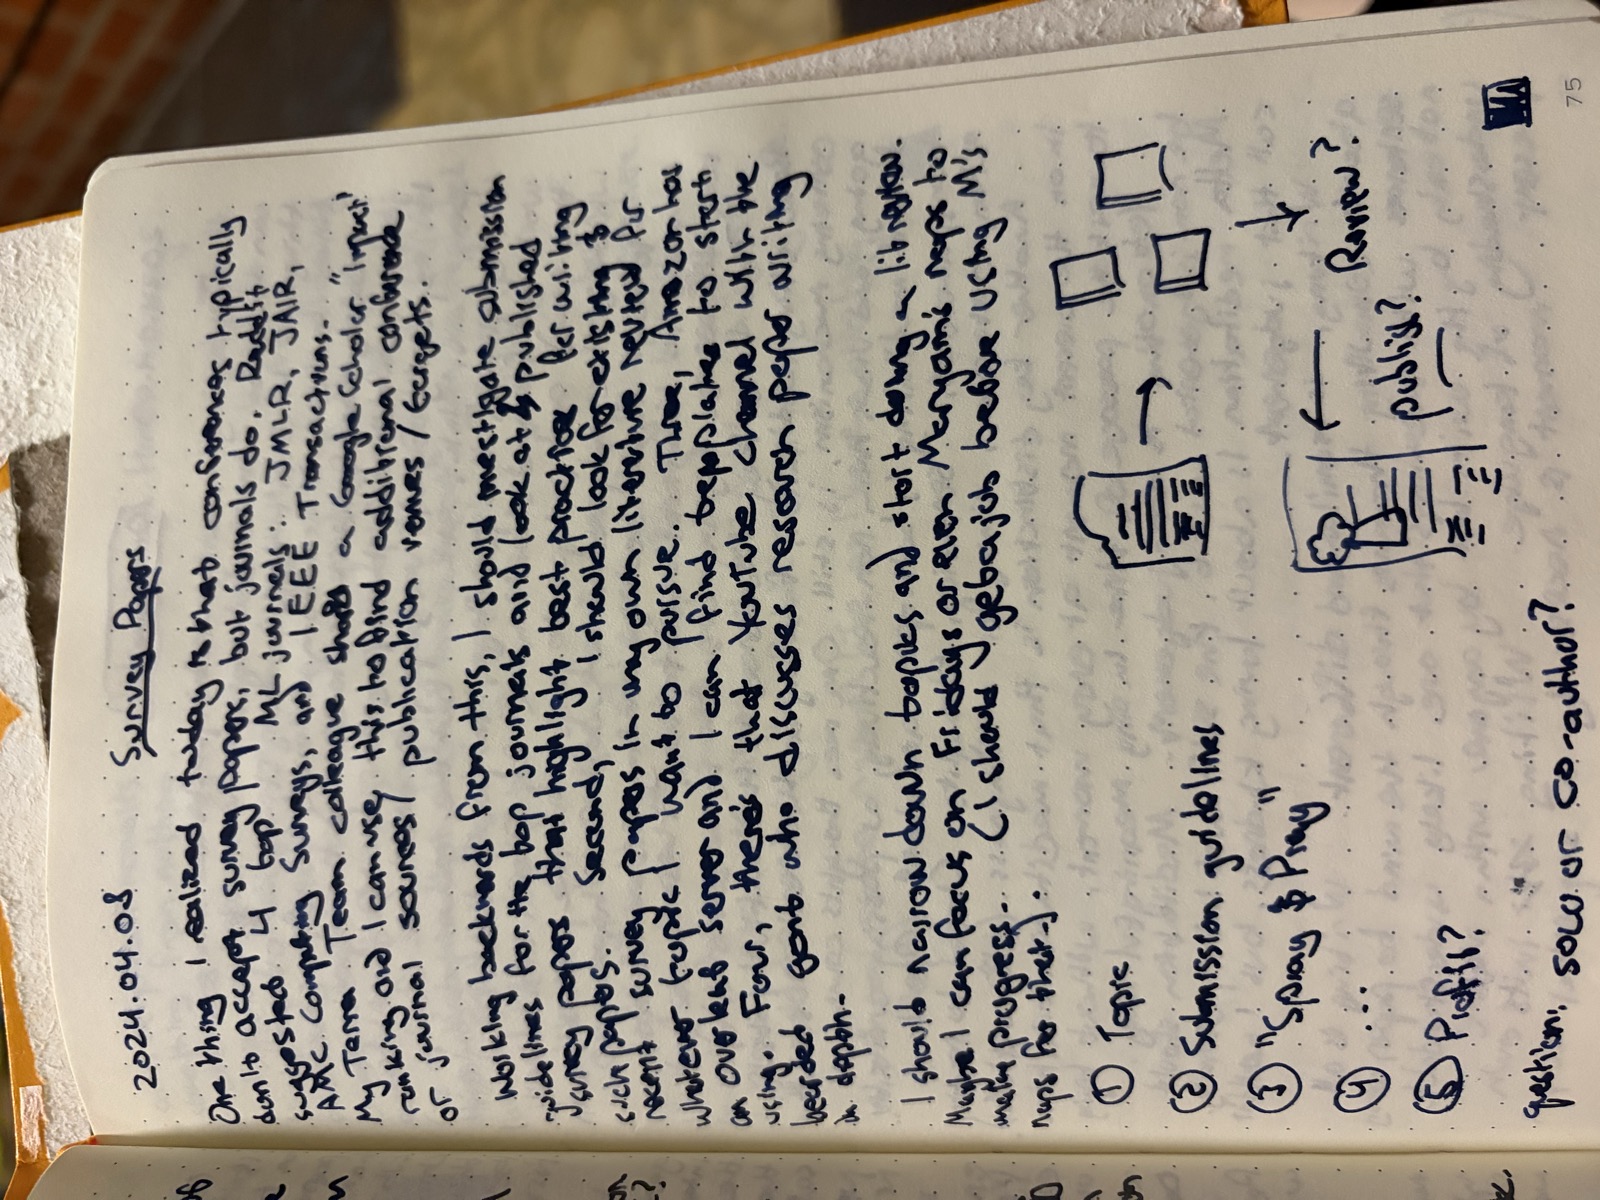 2024.04.08 Survey Papers
One thing I realized today is that conferences typically
don't accept survey papers, but journals do. Reddit
suggested 4 top ML journals: JMLR, JAIR,
ACM Computing Surveys, and IEEE Transactions.
My Team colleague shared a Google Scholar "impact"
ranking and I can use this to find additional conference
or journal sources / publication venues / targets.
Working backwards from this, I should investigate submission
guidelines for the top journals and look at published
survey papers that highlight best practice for writing
such papers. Second, I should look for existing &
recent survey papers in my own literature review for
whatever topic I want to pursue. Three, Amazon has
an overleaf server and I can find templates to start
using. Four, there's that YouTube channel with the
bearded who discusses research paper writing
in depth.
I should narrow down topics and start doing a lit review.
Maybe I can focus on Fridays or even Maryam's naps to
make progress. (I should get a job before using M's
naps for that).
① Topic
② Submission guidelines
③ "Spray & Pray"
④ ...
⑤ Profit?
Review?
publish?
question: solo or co-author?
75